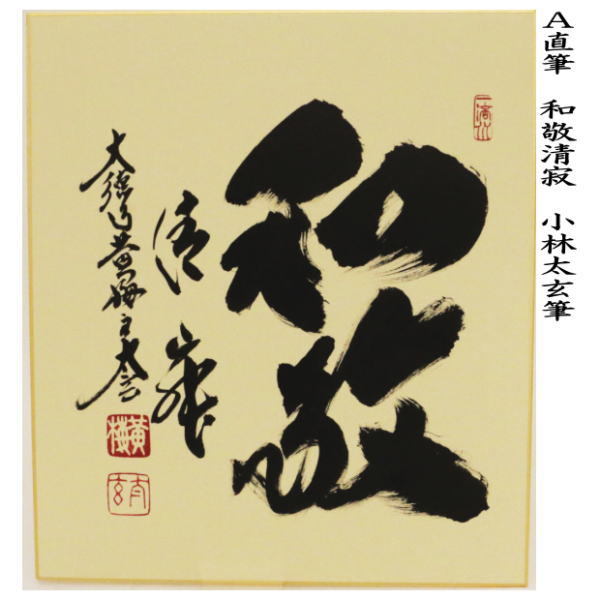 A直筆　和敬清寂　小林太玄筆
和敬
清寂
大徳寺黄梅主太玄
黄梅
太玄